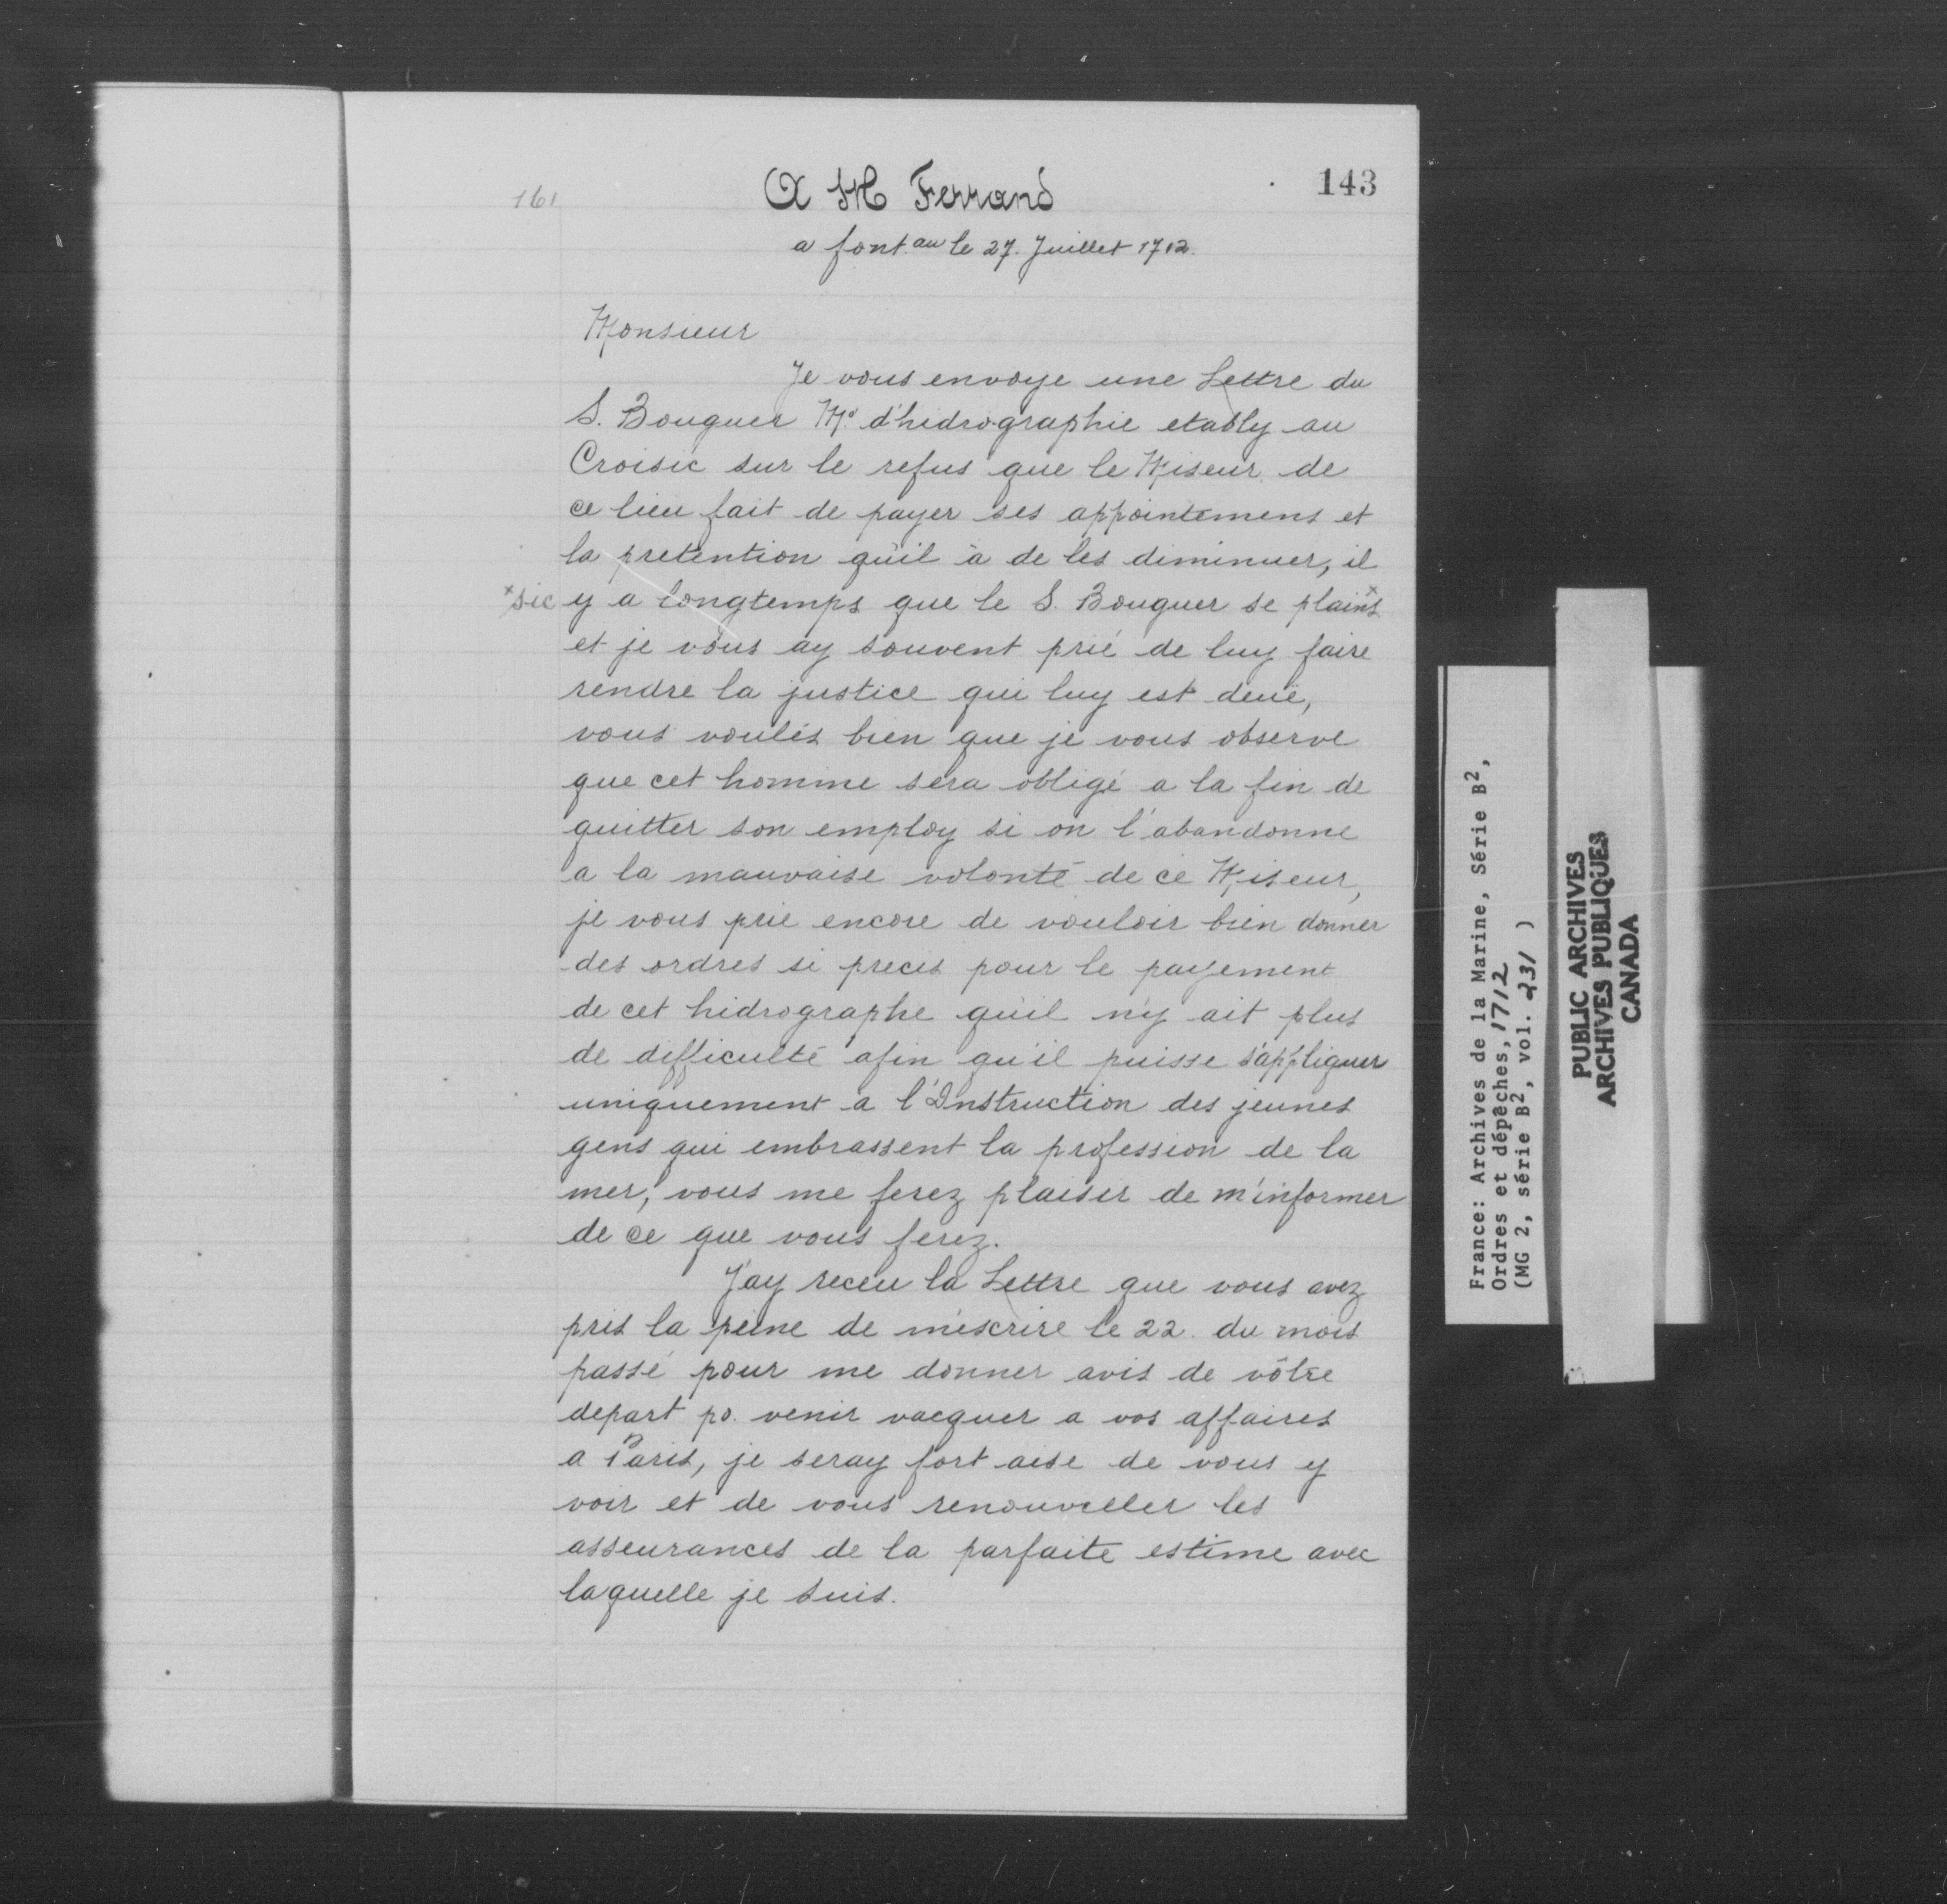 161
A M Ferrand
143
a font.au le 27. Juillet 1712.
Monsieur
Je vous envoye une Lettre du
S. Bouguer Mᵉ d'hidrographie etably au
Croisic sur le refus que le Miseur de
ce lieu fait de payer ses appointemens et
la pretention qu'il à de les diminuer, il
*sic y a longtemps que le S. Bouguer se plains*
et je vous ay souvent prié de luy faire
rendre la justice qui luy est deuë,
vous voulés bien que je vous observe
que cet homme sera obligé a la fin de
quitter son employ si on l'abandonne
a la mauvaise volonté de ce Miseur,
je vous prie encore de vouloir bien donner
des ordres si precis pour le payement
de cet hidrographe qu'il n'y ait plus
de difficulté afin qu'il puisse s'appliquer
uniquement a l'Instruction des jeunes
gens qui embrassent la profession de la
mer, vous me ferez plaisir de m'informer
de ce que vous ferez.
J'ay receu la Lettre que vous avez
pris la peine de m'escrire le 22. du mois
passé pour me donner avis de vôtre
depart po. venir vacquer a vos affaires
a Paris, je seray fort aise de vous y
voir et de vous renouveller les
asseurances de la parfaite estime avec
laquelle je suis.
France: Archives de la Marine, Série B²,
Ordres et dépêches, 1712
(MG 2, série B², vol. 231 )
PUBLIC ARCHIVES
ARCHIVES PUBLIQUES
CANADA